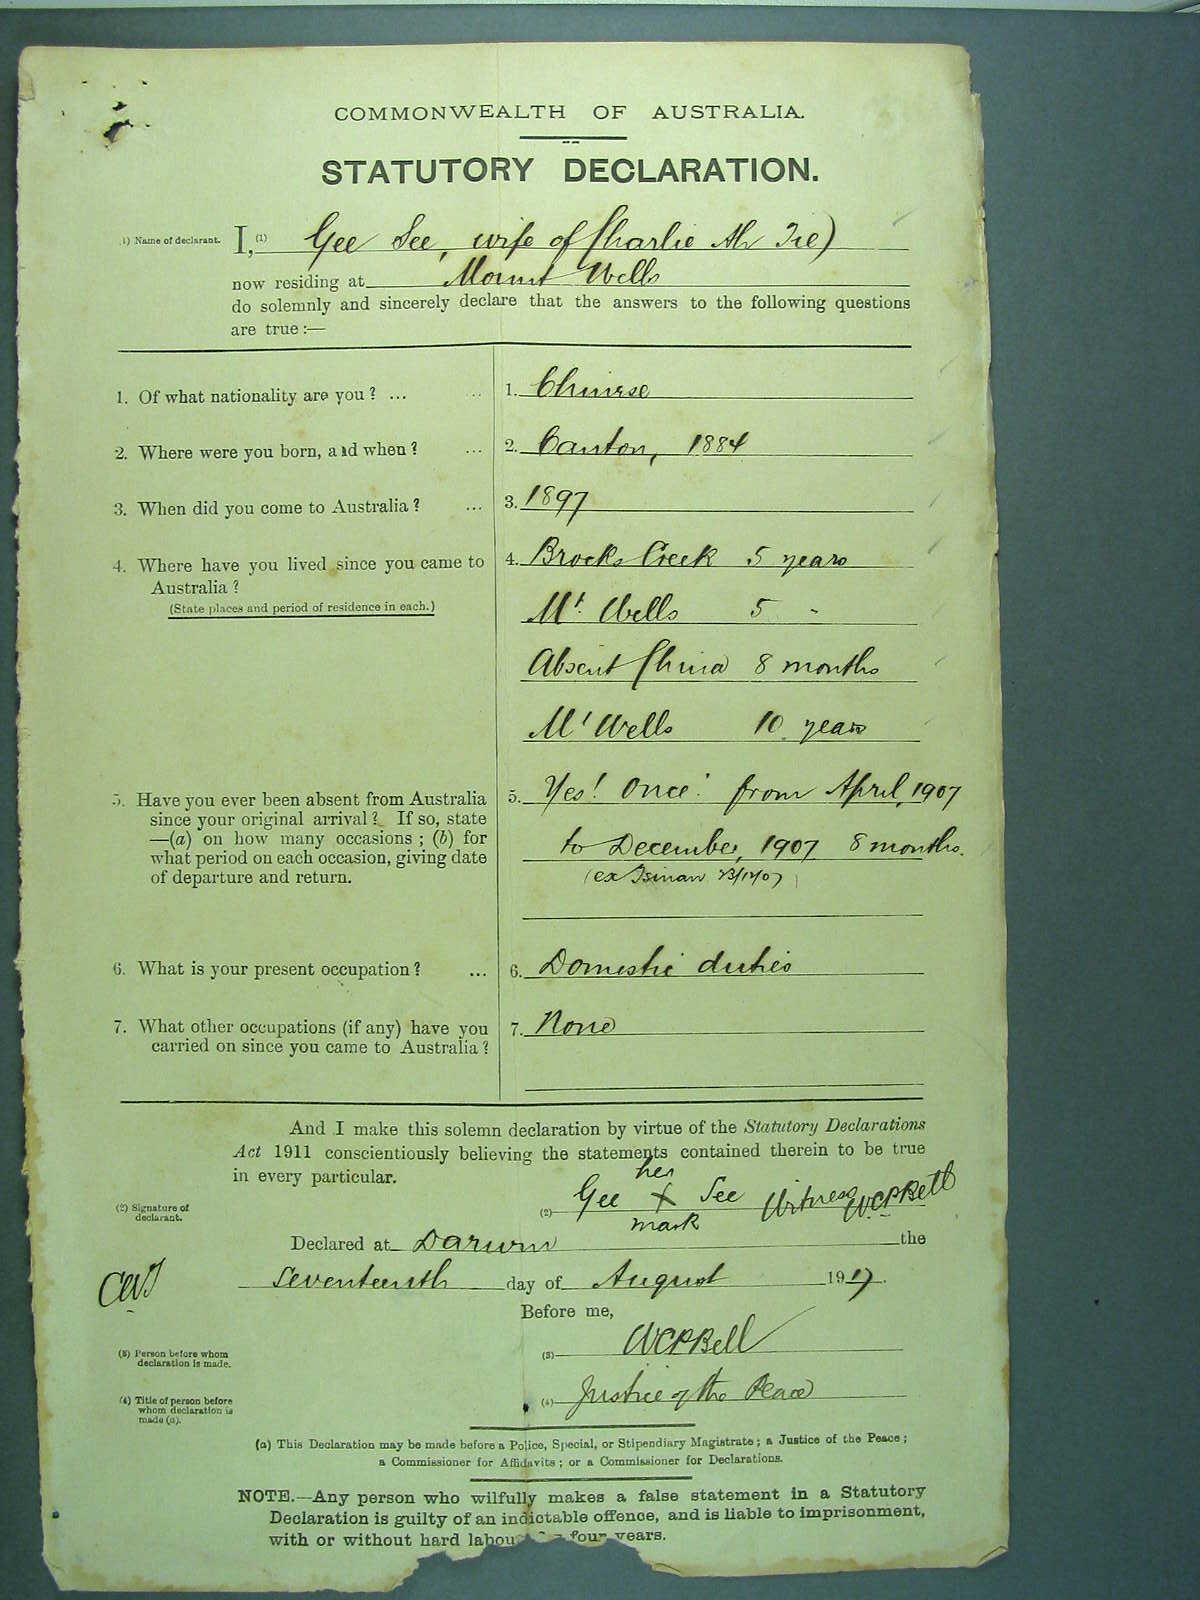 COMMONWEALTH OF AUSTRALIA.
STATUTORY DECLARATION.
(1) Name of declarant. I, (1) Gee See, wife of Charlie Ah Tie)
now residing at Mount Wells
do solemnly and sincerely declare that the answers to the following questions
are true :—
1. Of what nationality are you ? ... ... 1. Chinese
2. Where were you born, and when ? ... 2. Canton, 1884
3. When did you come to Australia ? ... 3. 1897
4. Where have you lived since you came to 4. Brocks Creek 5 years
Australia ?
(State places and period of residence in each.) Mt. Wells 5 "
Absent China 8 months
Mt Wells 10 years
5. Have you ever been absent from Australia 5. Yes! Once! from April, 1907
since your original arrival ? If so, state
—(a) on how many occasions ; (b) for to December, 1907 8 months.
what period on each occasion, giving date
of departure and return. (ex 23/12/07)
6. What is your present occupation ? ... 6. Domestic duties
7. What other occupations (if any) have you 7. None
carried on since you came to Australia ?
And I make this solemn declaration by virtue of the Statutory Declarations
Act 1911 conscientiously believing the statements contained therein to be true
in every particular.
her
(2) Signature of (2) Gee X See Witness WCPBell
declarant. mark
Declared at Darwin the
Seventeenth day of August 1917.
Before me,
(3) Person before whom (3) WCPBell
declaration is made.
(4) Title of person before (4) Justice of the Peace
whom declaration is
made (a).
(a) This Declaration may be made before a Police, Special, or Stipendiary Magistrate ; a Justice of the Peace ;
a Commissioner for Affidavits ; or a Commissioner for Declarations.
NOTE.—Any person who wilfully makes a false statement in a Statutory
Declaration is guilty of an indictable offence, and is liable to imprisonment,
with or without hard labour four years.